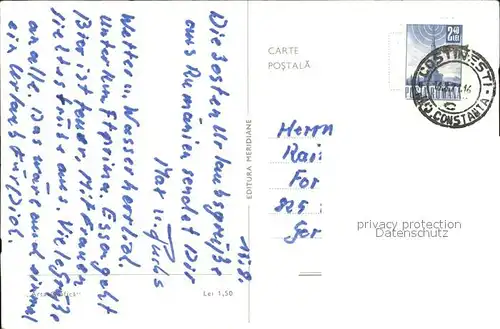 13.9.
Die besten Urlaubsgrüße
aus Rumänien sendet Dir
Max u. Gabs
Wetter u. Wasser herrlich
Unterkunft prima. Essen geht
Bier ist teuer. Mit Frauen
sieht es trübe aus. Viele Grüße
an alle. Das wäre auch einmal
ein Urlaub für Dich.
Lei 1,50
EDITURA MERIDIANE
CARTE
POȘTALĂ
2,40
LEI
COSTINEȘTI
CONSTANȚA
Herrn
Kai
For
825
Ger
privacy protection
Datenschutz